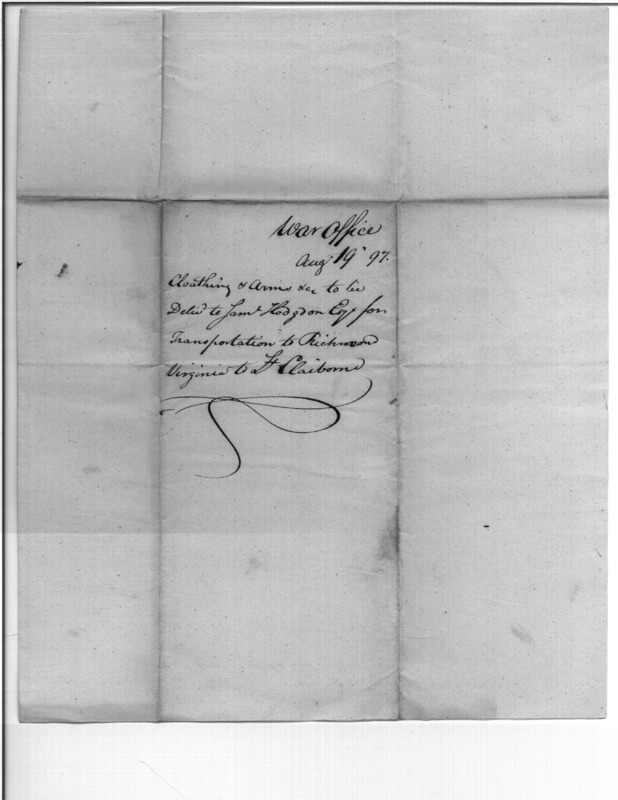 War Office
Aug 19 97.
Cloathing & Arms &c to be
Deliv'd to Sam.l Hodgdon Esq.r for
Transportation to Richmond
Virginia to Lt Claiborne